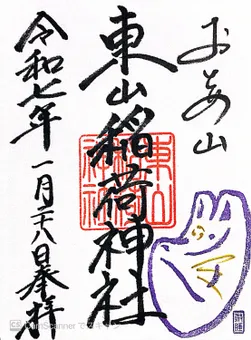 東山稲荷神社
東山
稲荷
神社
令和七年一月廿八日奉拝
CS CamScanner でスキャン